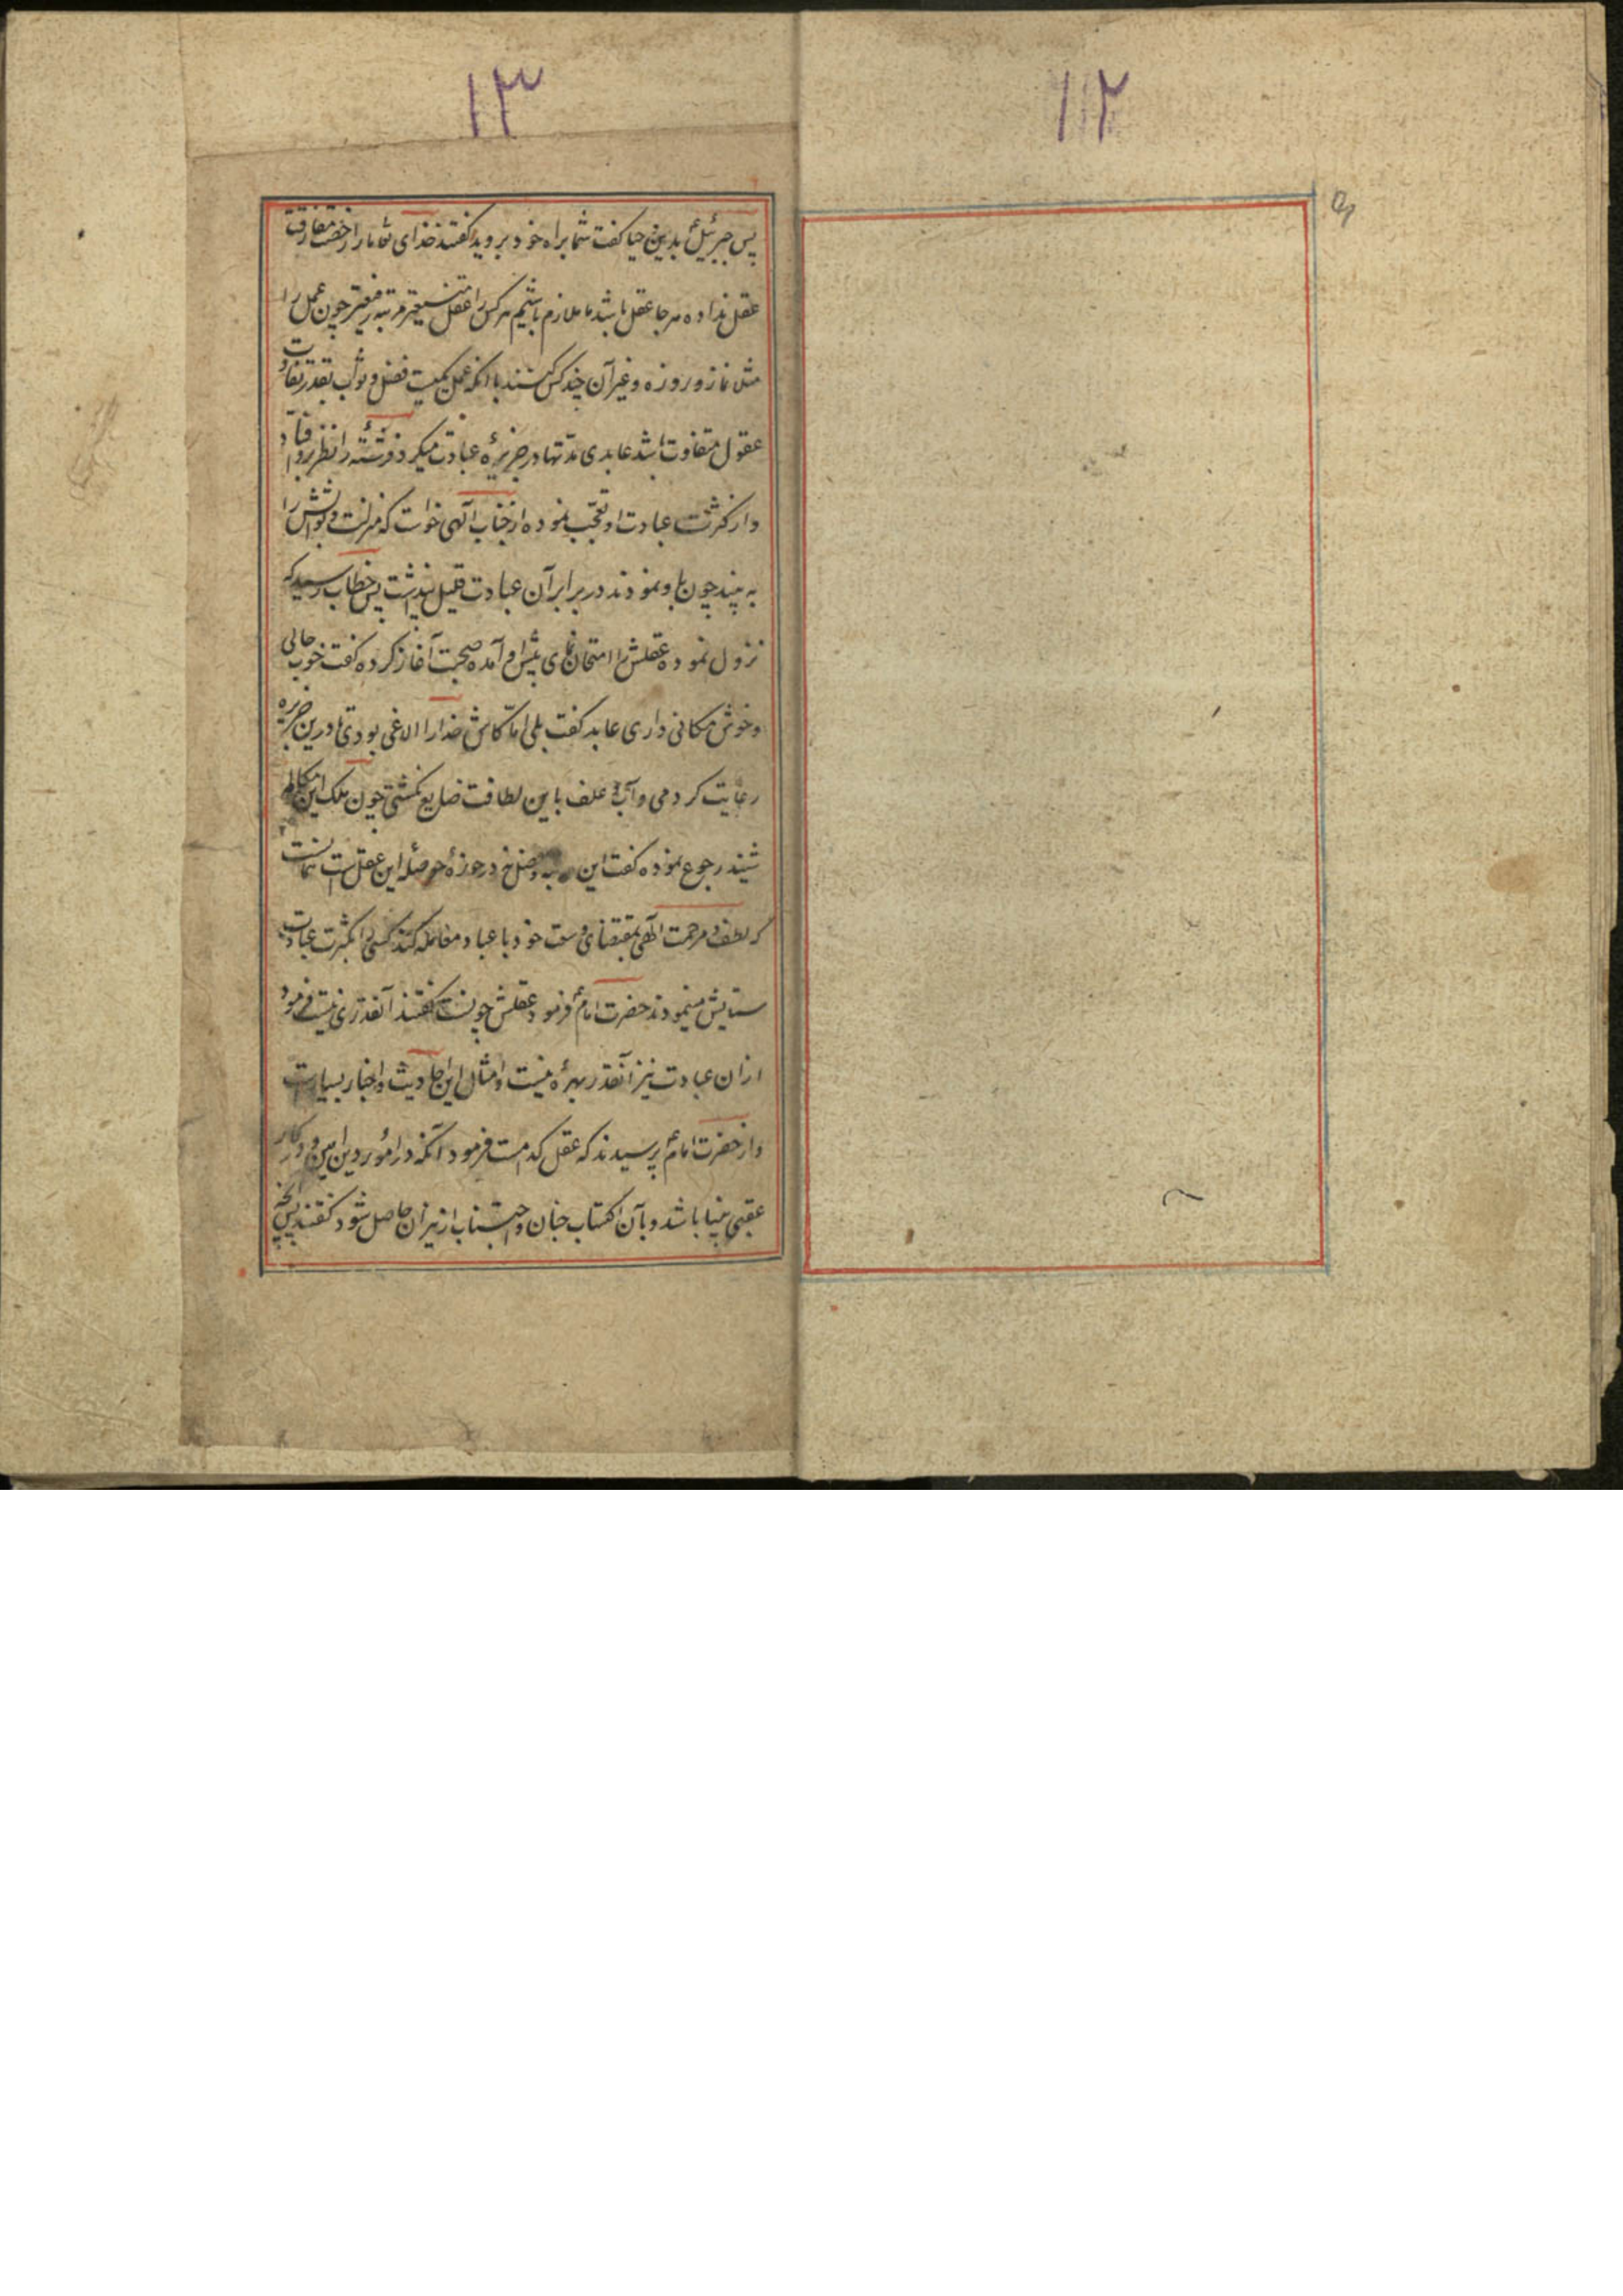 ۱۲
۱۳
پس جبرئیل بدین حیا کفت شما براه خود بروید کفتند خدای تعا مارا رخصت مفارقت
عقل نداده هر جا عقل باشد ما ملازم باشیم هر کس را عقل مرتبه رفیعتر چون عمل را
مثل نماز و روزه و غیر آن چند کس کنند با آنکه عمل یکیست فضل و ثواب بقدر تفاوت
عقول متفاوت باشد عابدی مدتها در جزیرهٔ عبادت میکرد فرشتهٔ را نظر برو افتاد
و از کثرت عبادت او تعجب نموده از جناب الهی خواست که منزلت و ثوابش را
به بیند چون باو نمودند در برابر آن عبادت قلیل پنداشت پس خطاب رسید که
نزول نموده عقلش را امتحان نمای پیش او آمده صحبت آغاز کرده کفت خوب جائی
و خوش مکانی داری عابد کفت بلی اما کاش خدا را الاغی بودی تا درین جزیره
رعایت کردمی و آب و علف باین لطافت ضایع نکشتی چون ملک این کلام
شنید رجوع نموده کفت این فضل در حوزهٔ حوصله این عقل است
که لطف و مرحمت الهی بمقتضای وسعت خود با عباد معامله کند کسی را بکثرت عبادت
ستایش مینمودند حضرت امام فرمود عقلش چونست کفتند آنقدری نیست فرمود
از ان عبادت نیز آنقدر بهره نیست و امثال این احادیث و اخبار بسیارست
و از حضرت امام پرسیدند که عقل کدامست فرمود آنکه در امور دین امین و در کار
عقبی بینا باشد و بآن اکتساب جنان و اجتناب از نیران حاصل شود کفتند پس آنچه